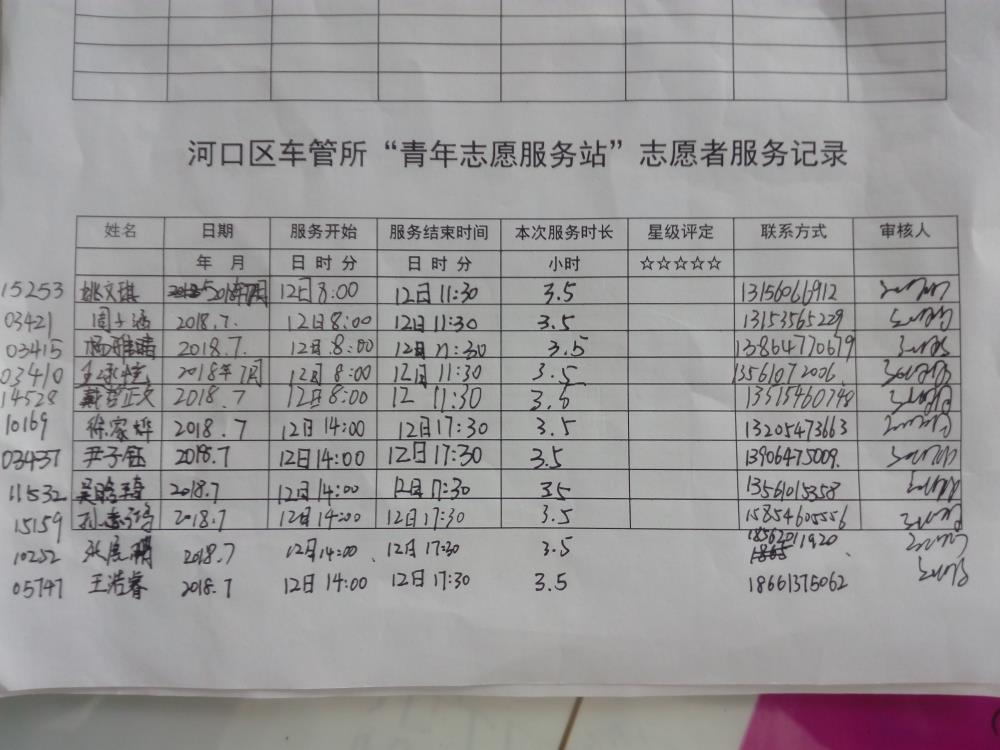 河口区车管所“青年志愿服务站”志愿者服务记录
姓名 日期 服务开始 服务结束时间 本次服务时长 星级评定 联系方式 审核人
年 月 日 时 分 日 时 分 小时 ☆☆☆☆☆
15253 姚文琪 2018年7月 12日8:00 12日11:30 3.5 13156066912
03421 周子涵 2018.7. 12日8:00 12日11:30 3.5 13153565229
03415 杨雅晴 2018.7. 12日8:00 12日11:30 3.5 13864770679
03410 2018年7月 12日8:00 12日11:30 3.5 13561072006.
14528 2018.7 12日8:00 12 11:30 3.5 13515460748
10169 徐家烨 2018.7 12日14:00 12日17:30 3.5 13205473663
03437 尹子钰 2018.7 12日14:00 12日17:30 3.5 13906475009.
11532 2018.7 12日14:00 12日17:30 35 13561015358
15159 2018.7 12日14:00 12日17:30 3.5 15854605556
10252 2018.7 12日14:00、 12日17:30 3.5 18562011920
05747 王浩睿 2018.7 12日14:00 12日17:30 3.5 18661375062